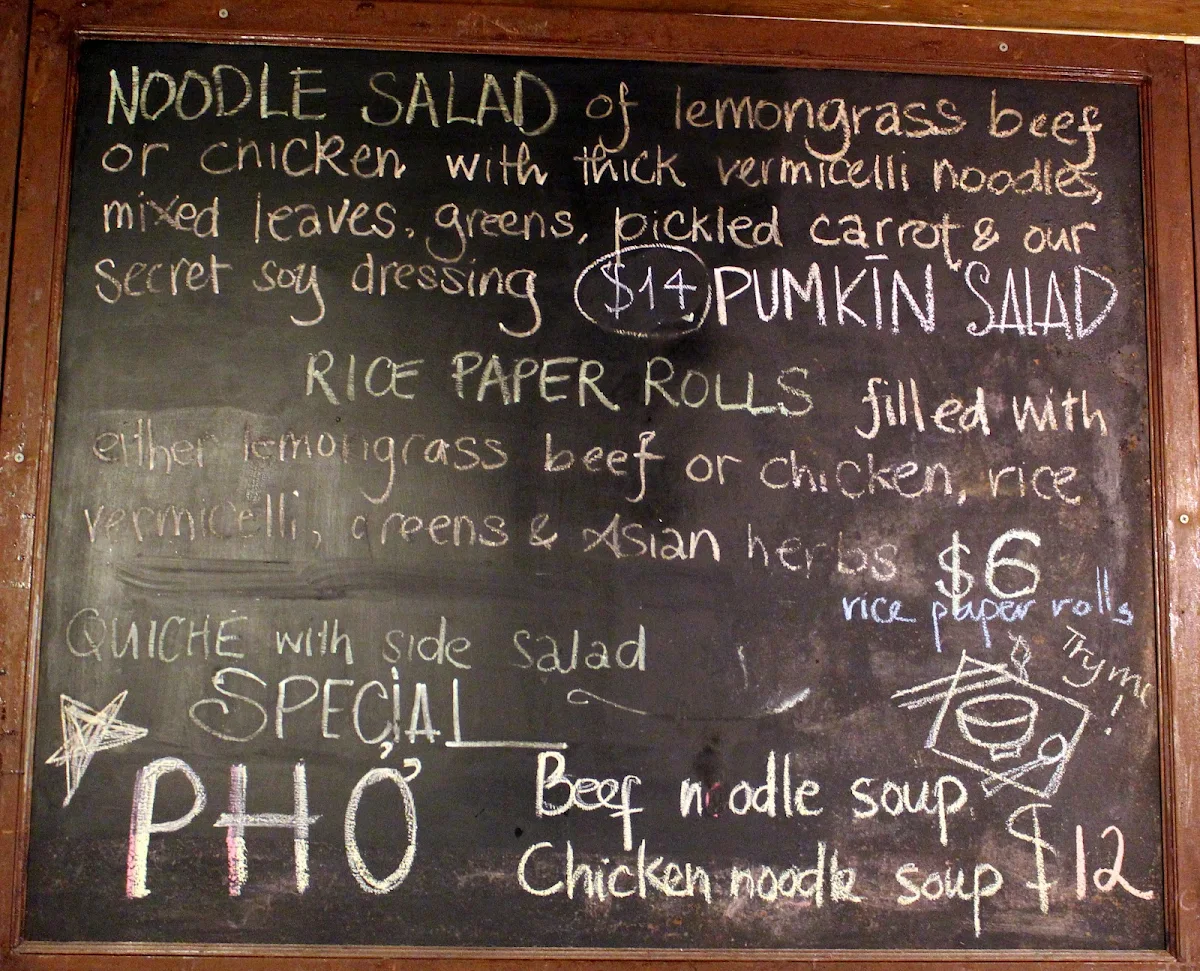 NOODLE SALAD of lemongrass beef
or chicken with thick vermicelli noodles,
mixed leaves, greens, pickled carrot & our
secret soy dressing $14 PUMKIN SALAD
RICE PAPER ROLLS filled with
either lemongrass beef or chicken, rice
vermicelli, greens & Asian herbs $6
rice paper rolls
QUICHE with side salad
Try me!
SPECIAL
PHỞ
Beef noodle soup
Chicken noodle soup $12